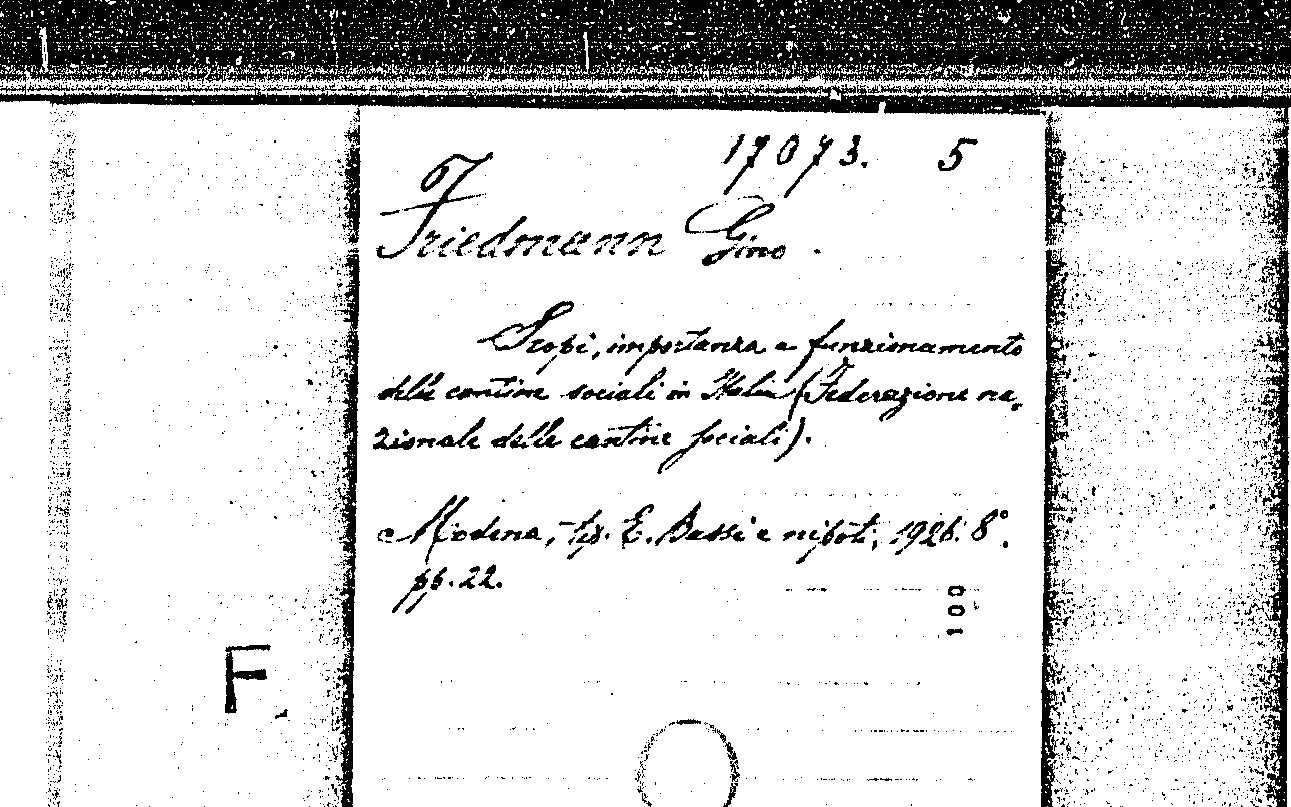 17073. 5
Friedmann Gino.
Scopi, importanza e funzionamento
delle cantine sociali in Italia (Federazione na,
zionale delle cantine sociali).
Modena, tip. E. Bassi e nipoti, 1926. 8°.
pp. 22.
100
F.